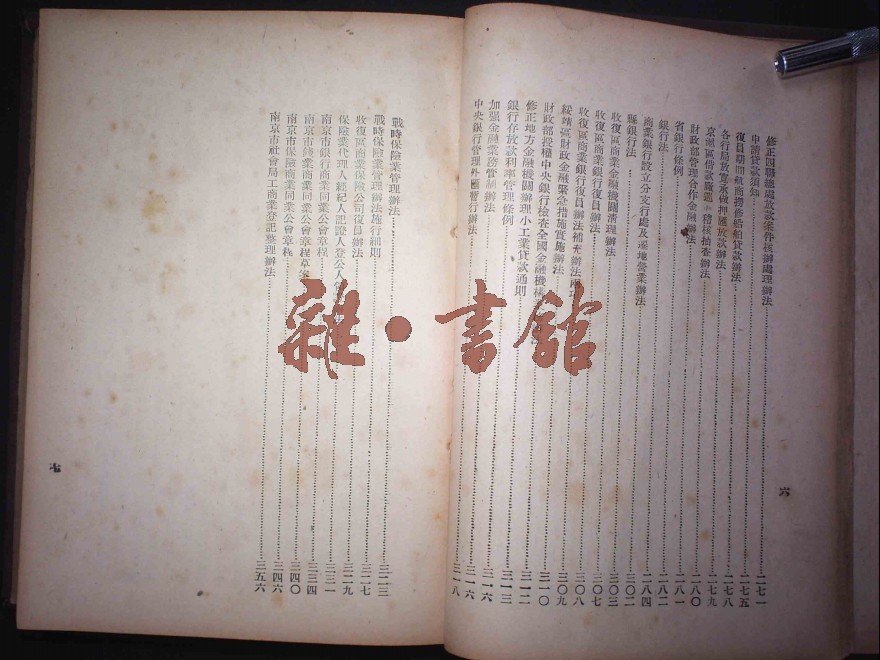 修正四聯總處放款案件核辦處理辦法……二七一
申請貸款須知……二七五
復員期間航商撈修船舶貸款辦法……二七八
各行局放寬承做押匯放款辦法……二七九
京滬區借款廠 稽核抽查辦法……二八〇
財政部管理合作金融辦法……二八一
省銀行條例……二八二
銀行法……二八四
商業銀行設立分支行處及遷地營業辦法……三〇二
縣銀行法……三〇三
收復區商業金融機關清理辦法……三〇七
收復區商業銀行復員辦法……三〇八
收復區商業銀行復員辦法補充辦法兩項……三〇九
綏靖區財政金融緊急措施實施辦法……三一〇
財政部授權中央銀行檢查全國金融機構……三一二
修正地方金融機關辦理小工業貸款通則……三一三
銀行存放款利率管理條例……三一六
加强金融業務管制辦法……三一六
中央銀行管理外匯暫行辦法……三一八
六
戰時保險業管理辦法……三二三
戰時保險業管理辦法施行細則……三二七
收復區商業保險公司復員辦法……三二九
保險業代理人經紀人公證人登公人……三三一
南京市銀行商業同業公會章程……三三四
南京市錢業商業同業公會章程草案……三四〇
南京市保險商業同業公會章程……三四六
南京市社會局工商業登記整理辦法……三五六
七
雜·書館